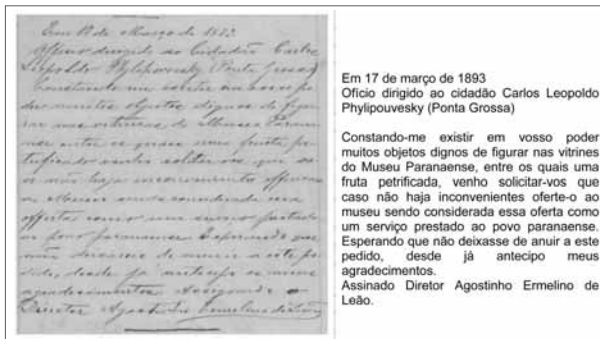 Em 17 de Março de 1893
Officio dirigido ao Cidadão Carlos
Leopoldo Phylipovesky (Ponta Grossa)
Constando-me existir em vosso po
der muitos objectos dignos de figu
rar nas vitrinas do Museu Parana
ense entre os quaes uma fruta pe
trificada venho solicitar-vos que ca
so não haja inconveniente
ao Museu sendo considerada essa
offerta como um serviço prestado
ao povo paranaense. Esperando que
não de annuir a este pe
dido, desde já antecipo os meus
agradecimentos Assignado o
Director Agostinho Ermelino de Leão
Em 17 de março de 1893
Ofício dirigido ao cidadão Carlos Leopoldo
Phylipouvesky (Ponta Grossa)
Constando-me existir em vosso poder
muitos objetos dignos de figurar nas vitrines
do Museu Paranaense, entre os quais uma
fruta petrificada, venho solicitar-vos que
caso não haja inconvenientes oferte-o ao
museu sendo considerada essa oferta como
um serviço prestado ao povo paranaense.
Esperando que não deixasse de anuir a este
pedido, desde já antecipo meus
agradecimentos.
Assinado Diretor Agostinho Ermelino de
Leão.